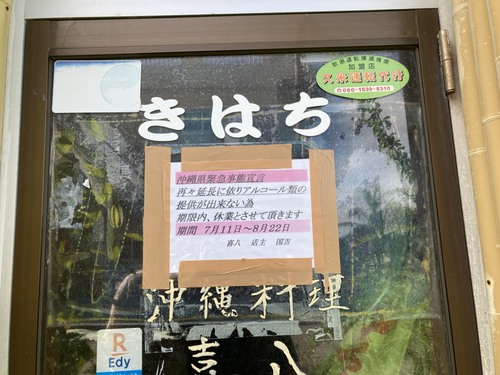 飲酒運転撲滅推奨
加盟店
久米運転代行
☎080-1539-8310
きはち
沖縄県緊急事態宣言
再々延長に依りアルコール類の
提供が出来ない為
期限内、休業とさせて頂きます
期間 7月11日~8月22日
喜八 店主 国吉
沖縄料理
喜八
R
Edy